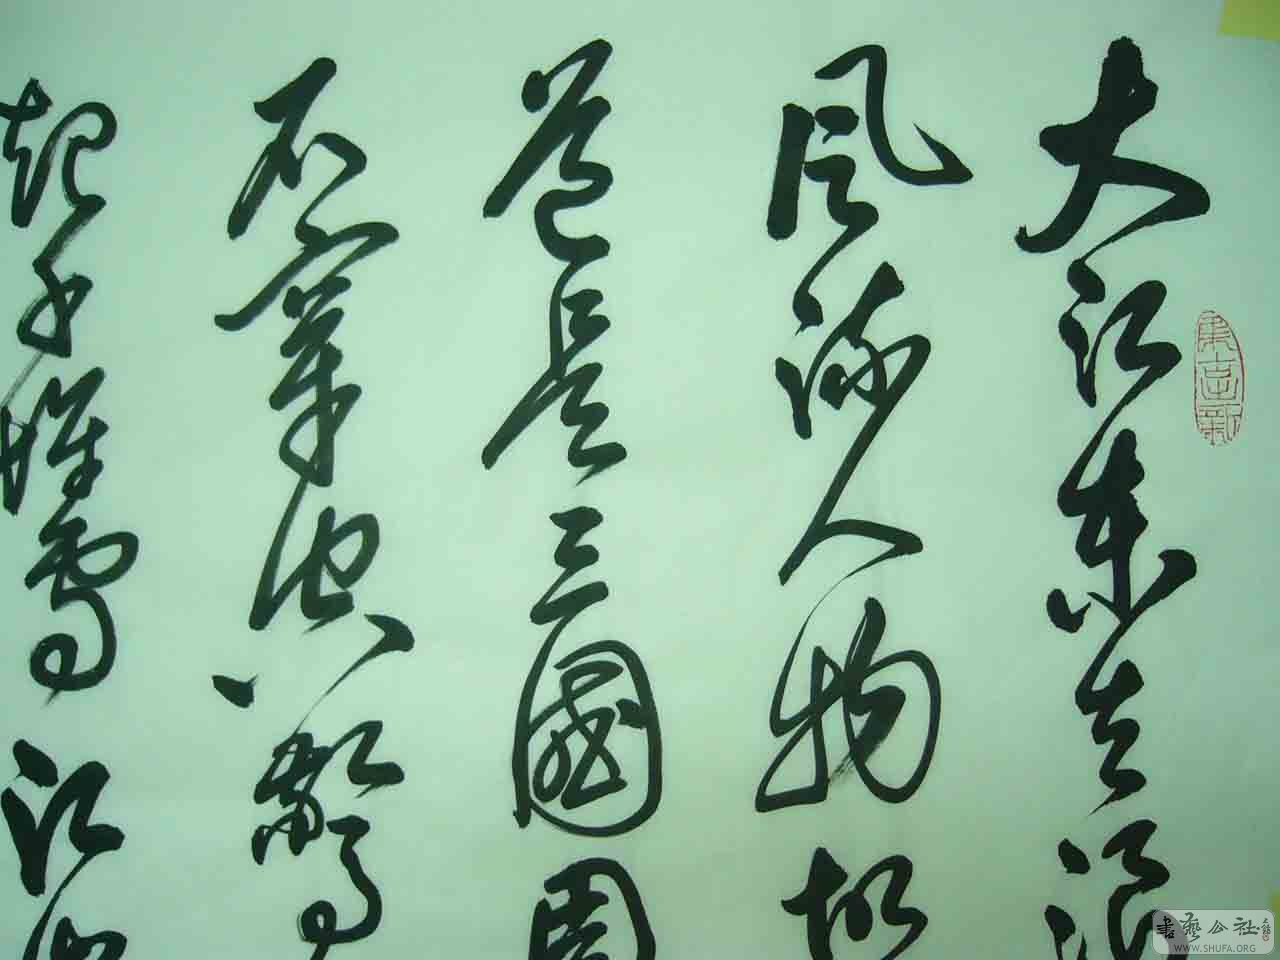 大江東去浪
風流人物故
道是三國周
石穿空驚
起千堆雪江山
書藝公社
WWW.SHUFA.ORG